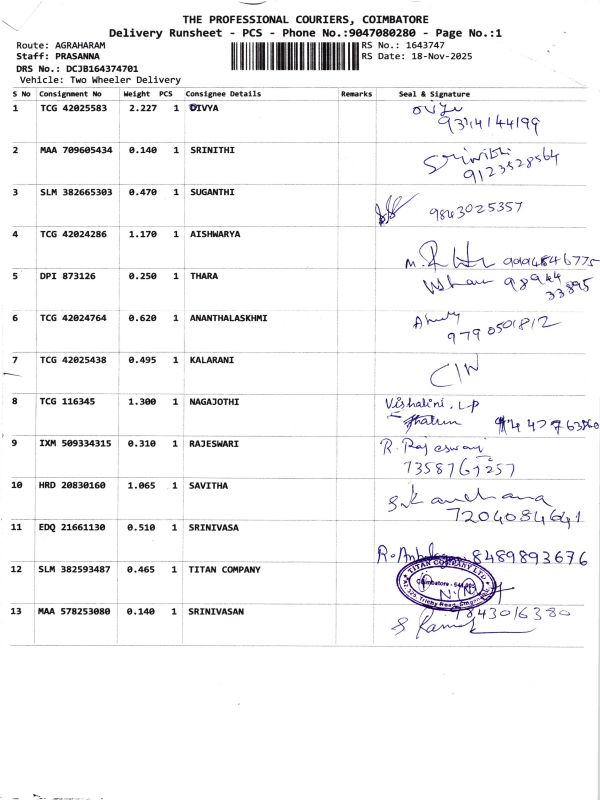 THE PROFESSIONAL COURIERS, COIMBATORE
Delivery Runsheet - PCS - Phone No.:9047080280 - Page No.:1
Route: AGRAHARAM RS No.: 1643747
Staff: PRASANNA RS Date: 18-Nov-2025
DRS No.: DCJB164374701
Vehicle: Two Wheeler Delivery
S No Consignment No Weight PCS Consignee Details Remarks Seal & Signature
1 TCG 42025583 2.227 1 DIVYA
2 MAA 709605434 0.140 1 SRINITHI Srinithi
9123528564
3 SLM 382665303 0.470 1 SUGANTHI 9843025357
4 TCG 42024286 1.170 1 AISHWARYA
5 DPI 873126 0.250 1 THARA 98944
33895
6 TCG 42024764 0.620 1 ANANTHALASKHMI
9790501812
7 TCG 42025438 0.495 1 KALARANI
8 TCG 116345 1.300 1 NAGAJOTHI Vishalini. L.P
9 IXM 509334315 0.310 1 RAJESWARI R. Rajeswari
10 HRD 20830160 1.065 1 SAVITHA S. Kanchana
7204084641
11 EDQ 21661130 0.510 1 SRINIVASA 8489893676
12 SLM 382593487 0.465 1 TITAN COMPANY TITAN COMPANY LTD
Coimbatore
13 MAA 578253080 0.140 1 SRINIVASAN 9843016380